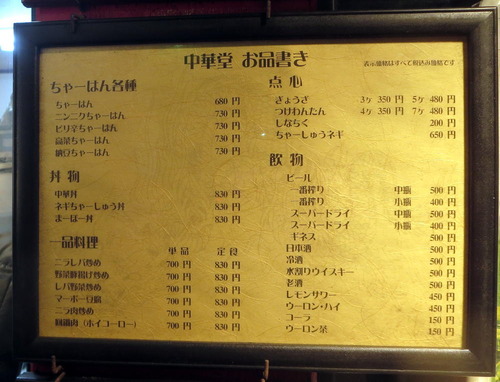 中華堂 お品書き
表示価格はすべて税込み価格です
ちゃーはん各種
ちゃーはん 680 円
ニンニクちゃーはん 730 円
ピリ辛ちゃーはん 730 円
高菜ちゃーはん 730 円
納豆ちゃーはん 730 円
丼 物
中華丼 830 円
ネギちゃーしゅう丼 830 円
まーぼー丼 830 円
一品料理 単 品 定 食
ニラレバ炒め 700 円 830 円
野菜味噌炒め 700 円 830 円
レバ野菜炒め 700 円 830 円
マーボー豆腐 700 円 830 円
ニラ肉炒め 700 円 830 円
回鍋肉（ホイコーロー） 700 円 830 円
点 心
ぎょうざ 3ヶ 350 円 5ヶ 480 円
つけわんたん 4ヶ 350 円 7ヶ 480 円
しなちく 200 円
ちゃーしゅうネギ 650 円
飲 物
ビール
一番搾り 中瓶 500 円
一番搾り 小瓶 400 円
スーパードライ 中瓶 500 円
スーパードライ 小瓶 400 円
ギネス 500 円
日本酒 500 円
冷酒 500 円
水割りウイスキー 500 円
老酒 500 円
レモンサワー 450 円
ウーロン・ハイ 450 円
コーラ 150 円
ウーロン茶 150 円